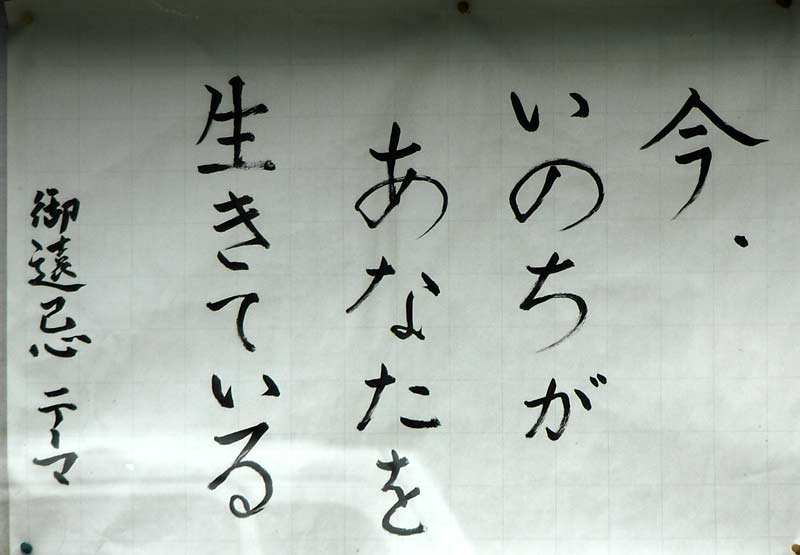 今、
いのちが
あなたを
生きている
御遠忌テーマ